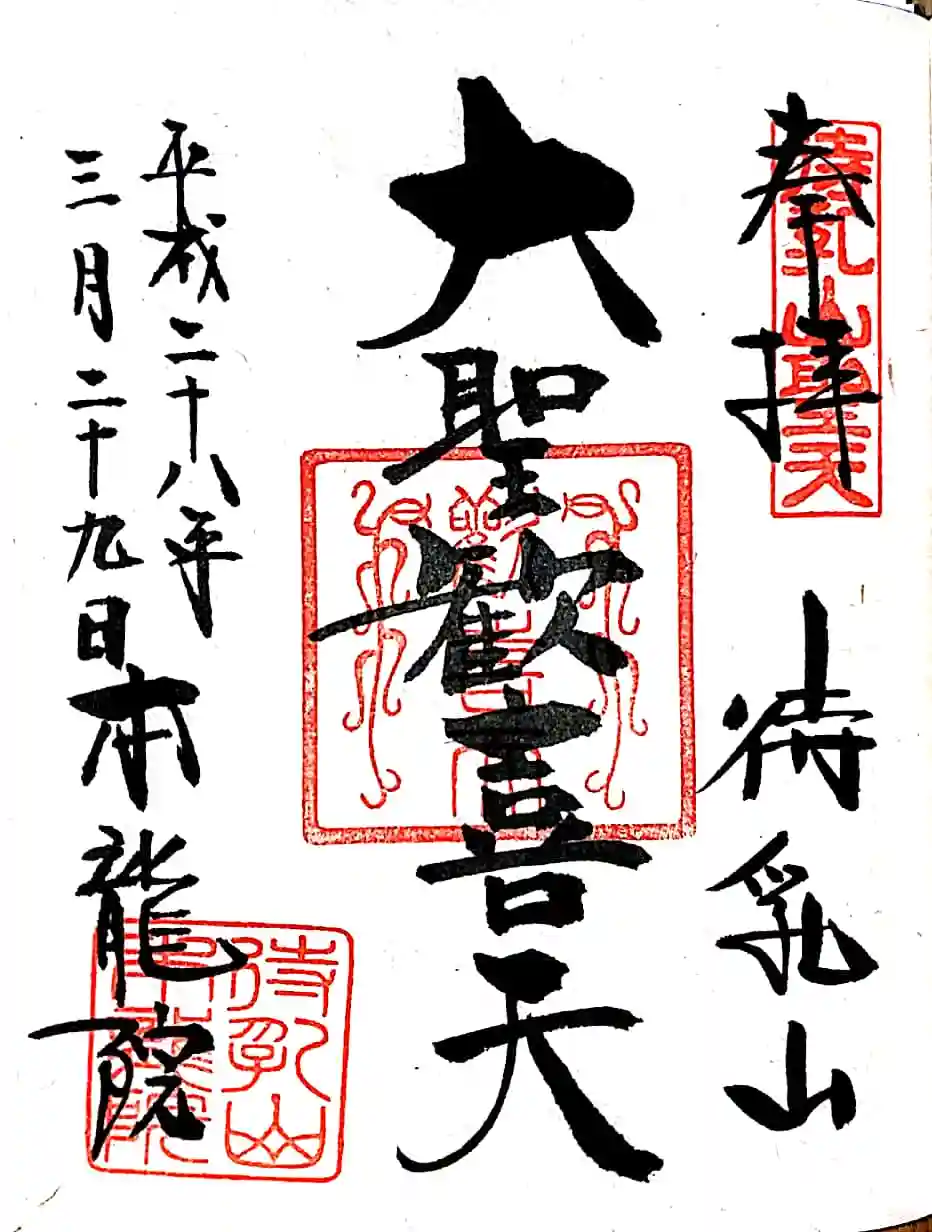 奉拝
待乳山
待乳山聖天
大聖歓喜天
平成二十八年
三月二十九日
本龍院
待乳山
本龍院